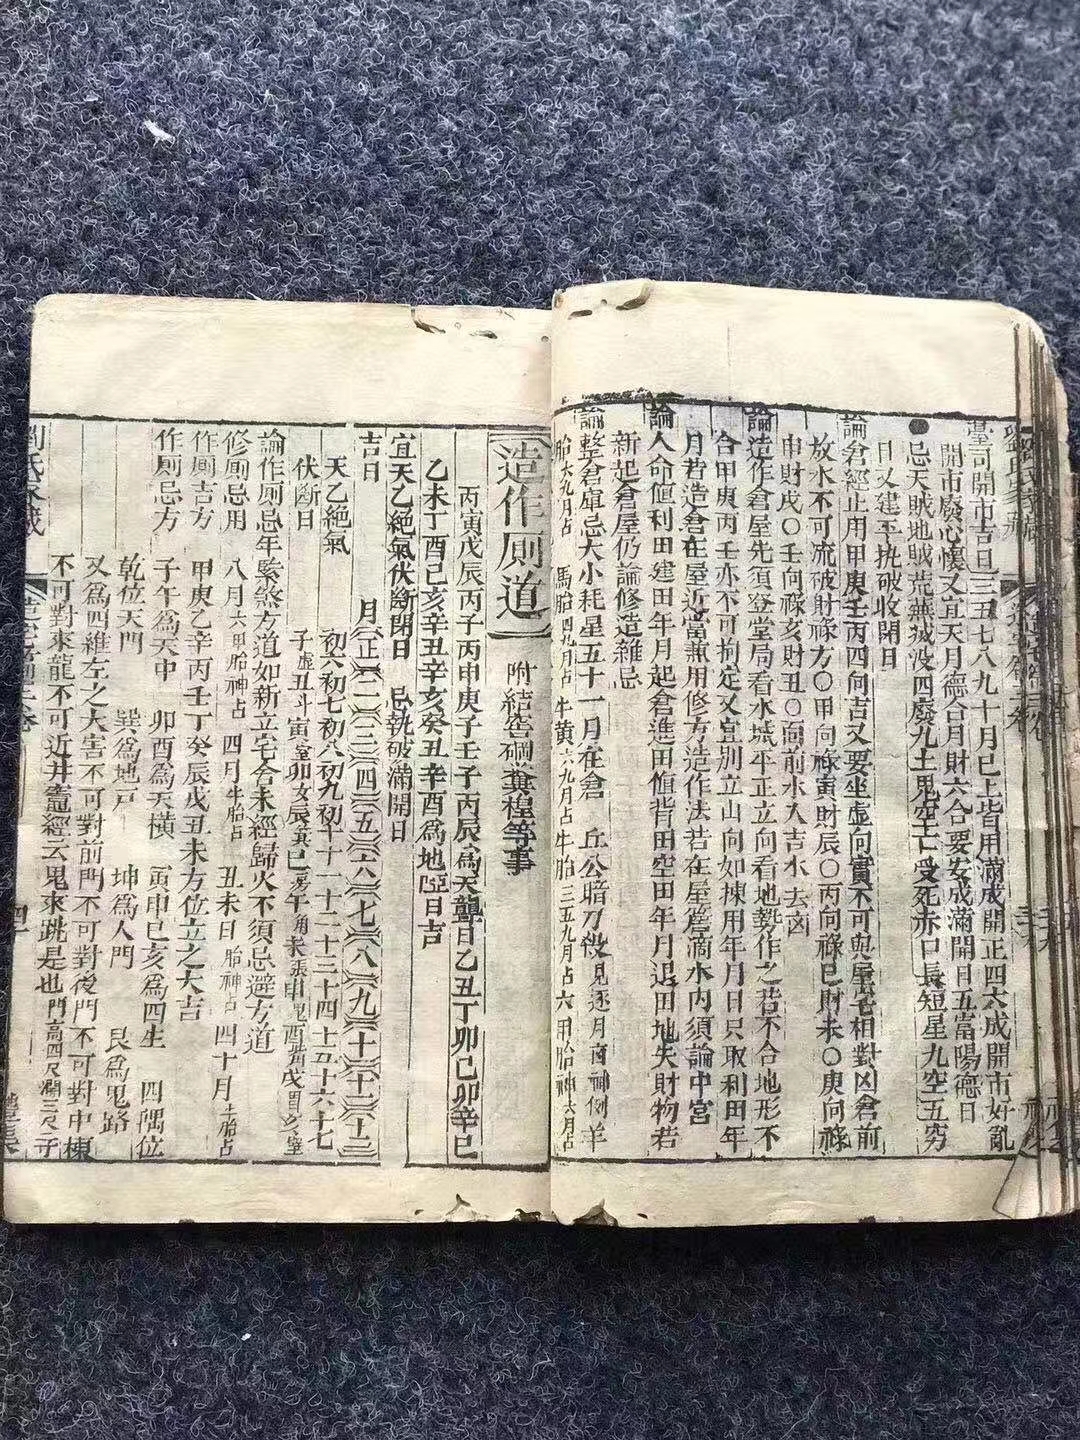 臺司開市吉日三五七八九十月巳上皆用滿成開正四六成開市好亂
開市廢心懷又宜天月德合月財六合要安成滿開日五當陽德日
●忌天賊地賊荒蕪滅没四廢九土鬼空亡受死赤口長短星九空五窮
日又建平執破收閉日
論倉經止用甲庚壬丙四向吉又要坐虛向實不可與屋宅相對凶倉前
放水不可流破財祿方〇甲向祿寅財辰〇丙向祿巳財未〇庚向祿
申財戌〇壬向祿亥財丑〇向前水入吉水去凶
論造作倉屋先須登堂局看水城平正立向看地勢作之若不合地形不
合甲庚丙壬亦不可拘定又宜別立山向如揀用年月日只取利田年
月若造倉在屋近當兼用修方造作法若在屋簷滴水內須論中宮
論人命値利田建田年月起倉進田値背田空田年月退田地失財物若
新起倉屋仍論修造雜忌
論整倉庫忌大小耗星五十一月在倉 丘公暗刀殺見逐月南神例羊
胎六九月占 馬胎四九月占 牛黃六九月占牛胎三五九月占六甲胎神六月占
造作厠道 附結砦碙糞椬等事
丙寅戊辰丙子丙申庚子壬子丙辰爲天聾日乙丑丁卯己卯辛巳
乙未丁酉己亥辛丑辛亥癸丑辛酉爲地啞日吉
宜天乙絶氣伏斷閉日 忌執破滿開日
吉日 月正二三四五六七八九十十一十二
天乙絶氣 初六初七初八初九初十十一十二十三十四十五十六十七
伏斷日 子虛丑斗寅室卯女辰箕巳房午角未張申鬼酉觜戌胃亥壁
論作厠忌年緊煞方道如新立宅舍未經歸火不須忌避方道
修厠忌用 八月六甲胎神占 四月牛胎占 丑未日胎神占四十月土胎占
作厠吉方 甲庚乙辛丙壬丁癸辰戌丑未方位立之大吉
作厠忌方 子午爲天中 卯酉爲天橫 寅申巳亥爲四生 四隅位
乾位天門 巽爲地戶 坤爲人門 艮爲鬼路
又爲四維左之大害不可對前門不可對後門不可對中棟
不可對來龍不可近井竈經云鬼來跳是也門高四尺濶三尺子